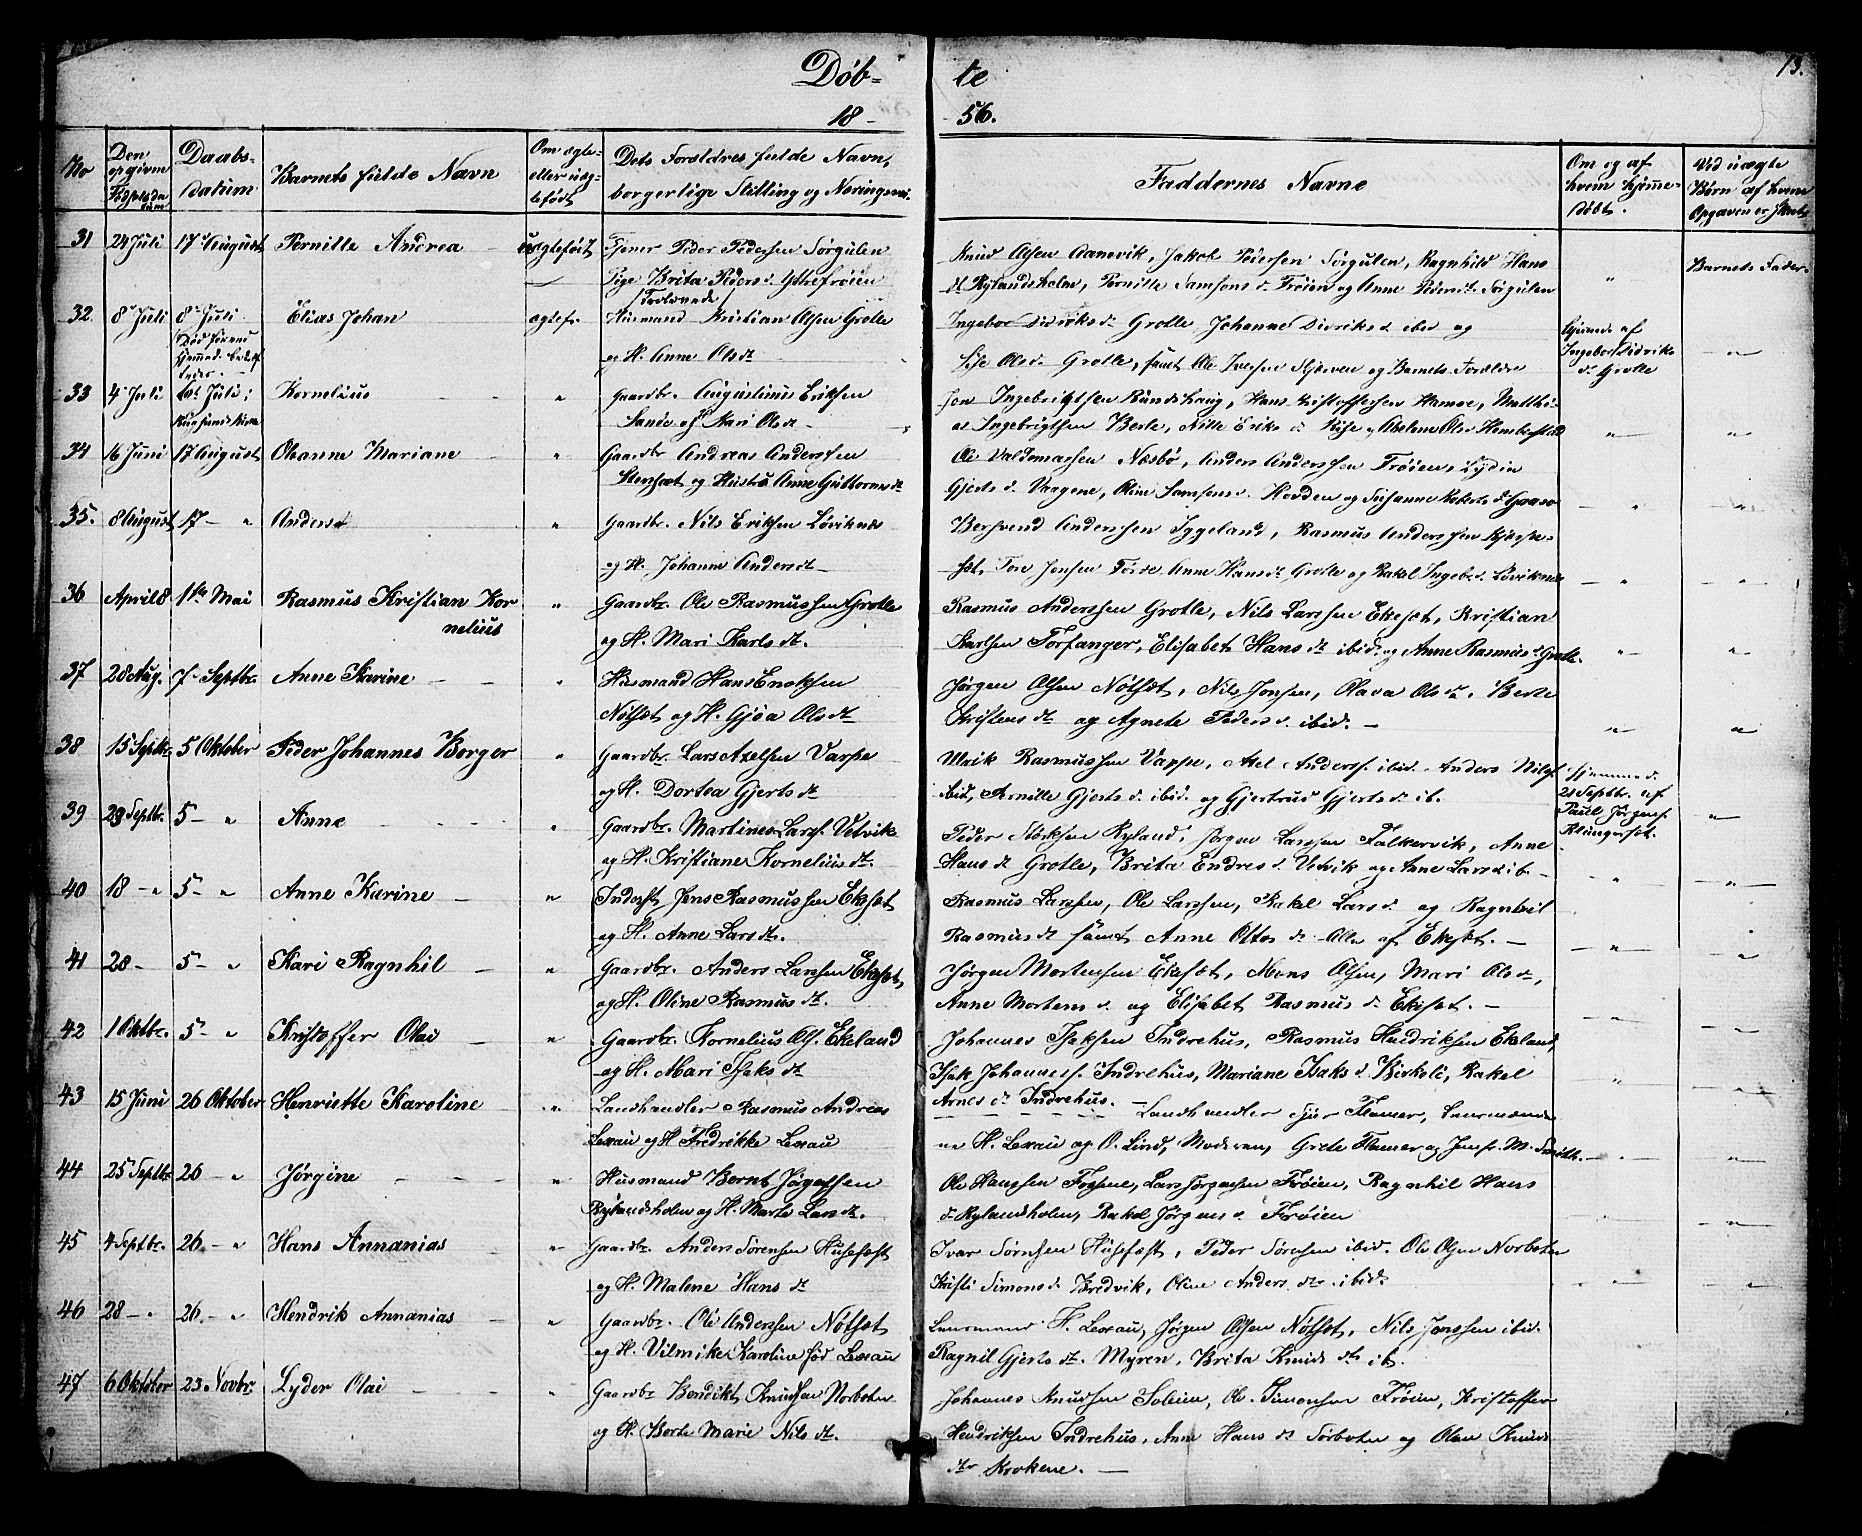 Døb-te
13.
18-56.
No
Den opgivne Fødselsdatum
Daabs-datum
Barnets fulde Navn
Om ægte- eller uæg- tefødt
Dets Forældres fulde Navn, borgerlige Stilling og Næringsvei.
Faddernes Navne
Om og af hvem hjemme- døbt.
Ved uægte Børn af hvem Opgaven er skeet
31 24 Juli 17 August Pernille Andrea uægtefødt Tjener Peder Pedersen Sørgulen
Pige Brita Peders d. Yttrefrøien
Knud Olsen Aanevik, Jakob Pedersen Sørgulen, Ragnhild Hans
dt Rylandsholm, Pernille Samsons d. Frøien og Anne Peders dt. Sørgulen
Barnets Fader
32. 8de Juli 8de Juli Elias Johan ægtef. Husmand Kristian Olsen Grotle
og H. Anne Olsdt
Ingebor Didriks dt Grotle, Johanne Didriks d ibid og
Sise Ols d. Grotle, samt Ole Iversen og Barnets Forældre
Hjemmed. af Ingebor Didriks d. Grotle
33 4 Juli Juli; Kornelius " Gaardbr. Augustinus Eriksen
og Mari Olsdt
Ingebrigtsen Rundehaug, Hans Kristoffersen Hamøe, Matthi-
as Ingebrigtsen Berle, Nille Eriks d.
34 16 Juni 17 August Oleanne Mariane " Gaardbr Andreas Anderssen
og Hustru Anne Guttorms dt
Ole Valdemarsen Næsbø, Anders Anderssen Frøien, Lydia
Gjerts d. Vaagene, Oline Samsons d. Hovden og Susanne
35. 8 August 17 - " Anders " Gaardbr. Nils Eriksen Løviknes
og H. Johanne Andersdt
Berhvend Anderssen Iggeland, Rasmus Anderssen
Tore Jonsen Førde Anne Hansdt Grotle og Rakel Ingebr.d. Løviknes
36 April 8 1ste Mai Rasmus Kristian Kor
nelius " Gaardbr. Ole Rasmussen Grotle
og H. Mari Karls dt.
Rasmus Anderssen Grotle, Nils Larssen Ekeset, Kristian
Karlsen Torfanger, Elisabet Hans dt ibid. og Anne Rasmus d. Grotle.
37 28 Aug. 7 Septbr. Anne Karine " Husmand Hans Enoksen
Nøtsæt og H. Gjøa Ols dt
Jørgen Olsen Nøtsæt, Nils Jonsen, Olava Ols d., Berte
Kristens dt og Agnete Peders d. ibid. -
38 15 Septbr. 5 Oktober Peder Johannes Borger " Gaardbr. Lars Axelsen Varpe
og H. Dortea Gjerts dt
Ulrik Rasmussen Varpe, Axel Anderss. ibid. Anders Nilss.
ibid, Pernille Gjerts d. ibid. og Gjertrud Gjerts dt. ib.
Hjemmed. 21 Septbr. af Paul Jørgens. Klungerset.
39 23 Septbr. 5 - " Anne " Gaardbr. Martines Larss. Vetvik
og H. Kristiane Kornelius dt.
Peder Størksen Ryland, Jørgen Larssen Falkervik, Anne
Hans dt Grotle, Brita Endres d. Vetvik og Anne Lars d. ib -
40 18 - " 5 - " Anne Karine " Inderst Jens Rasmussen Ekesæt
og H. Anne Lars dt.
Rasmus Larssen, Ole Larssen, Rakel Lars d og Ragnhil
Rasmus dt samt Anne Ottos dt Alle af Ekesæt. -
41 28 - 5 - " Kari Ragnhil " Gaardbr. Anders Larssen Ekesæt,
og H. Oline Rasmus dt.
Jørgen Mortensen Ekesæt, Mons Olsen, Mari Ols dt,
Anne Mortens d. og Elisabet Rasmus d. Ekeset. -
42 1 Oktbr. 5 - " Kristoffer Olai " Gaardbr. Kornelius Ols. Ekeland
og H. Mari Isaks dt
Johannes Isaksen Indrehus, Rasmus Hendriksen Ekeland,
Isak Johanness. Indrehus, Mariane Isaks d Birkeli, Rakel
Arnes dt Indrehus. -
43 15 Juni 26 Oktober Henriette Karoline " Landhandler Rasmus Andreas
Lexau og H. Fredrikke Lexau
Landhandler Sjur Flamer, Lensmænde-
ne H. Lexau og O. Lind, Moderen, Grete Flamer og Jomfr. M. Smith.
44 25 Septbr. 26 - " Jørgine " Husmand Bernt Jørgensen
Rylandsholm og H. Marte Lars dt.
Ole Hanssen Lars Jørgensen Frøien, Ragnhil Hans
dt Rylandsholm, Rakel Jørgens d. Frøien
45 4 Septbr. 26. - " Hans Annanias " Gaardbr. Anders Sørensen Husefest
og H. Malene Hans dt
Ivar Sørensen Husefæst, Peder Sørensen ibid. Ole Olsen Norbotn
Kristi Simons d. Bredvik, Oline Anders dtr. ibid.
46 28 - " 26. - " Hendrik Annanias " Gaardbr. Ole Anderssen Nøtsæt
og H. Vilmike Karoline fød Lexau
Lensmand H. Lexau, Jørgen Olsen Nøtsæt, Nils Jonssen ibid.
Ragnil Gjerts dt. Myren, Brita Knuds dtr ib.
47 6 Oktober 23 Novbr. Lyder Olai " Gaardbr Bendikt Knudsen Norbotn
og H. Berte Marie Nils dt.
Johannes Knudsen Soleim, Ole Simonsen Frøien, Kristoffer
Hendriksen Indrehus, Anne Hans dt Sørbotn og Oline Knuds
dtr Krokene. -